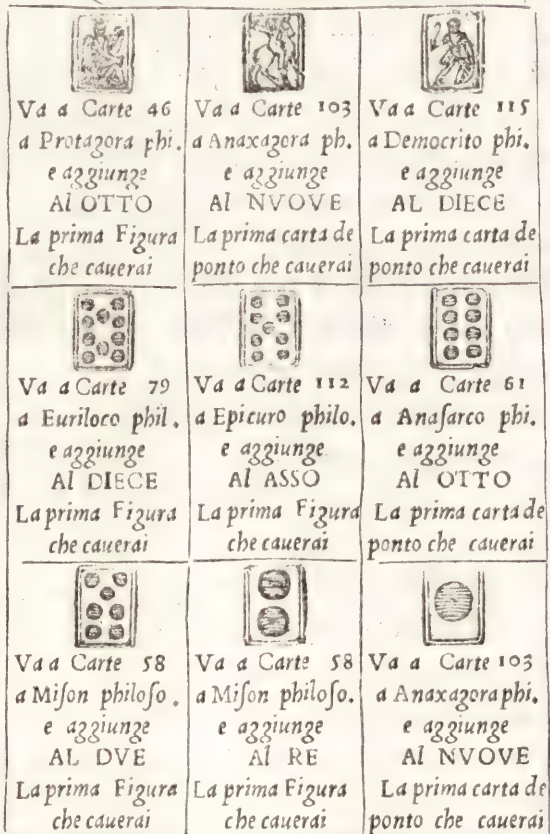 Va a Carte 46
a Protagora phi.
e aggiunge
Al OTTO
La prima Figura
che cauerai
Va a Carte 103
a Anaxagora ph.
e aggiunge
Al NVOVE
La prima carta de
ponto che cauerai
Va a Carte 115
a Democrito phi.
e aggiunge
AL DIECE
La prima carta de
ponto che cauerai
Va a Carte 79
a Euriloco phil.
e aggiunge
Al DIECE
La prima Figura
che cauerai
Va a Carte 112
a Epicuro philo.
e aggiunge
Al ASSO
La prima Figura
che cauerai
Va a Carte 61
a Anaſarco phi.
e aggiunge
Al OTTO
La prima carta de
ponto che cauerai
Va a Carte 58
a Miſon philoſo.
e aggiunge
AL DVE
La prima Figura
che cauerai
Va a Carte 58
a Miſon philoſo.
e aggiunge
Al RE
La prima Figura
che cauerai
Va a Carte 103
a Anaxagora phi.
e aggiunge
Al NVOVE
La prima carta de
ponto che cauerai